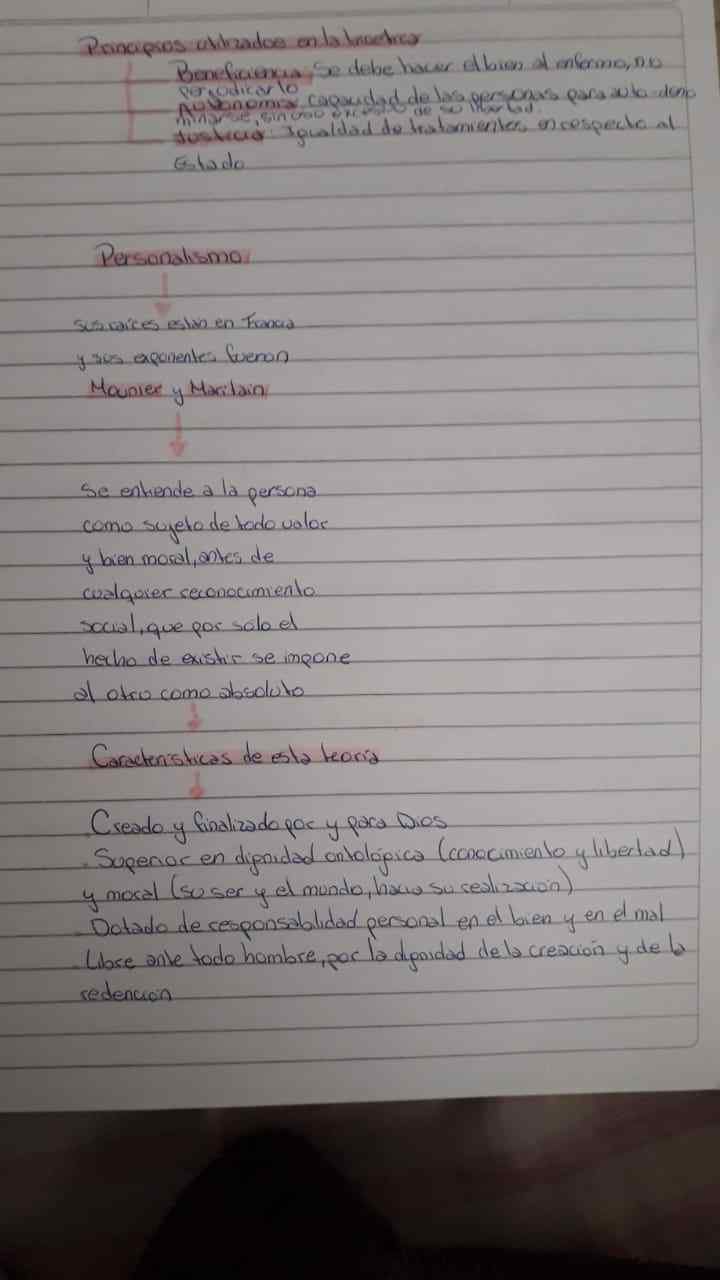 Principios utilizados en la bioetica
Beneficiencia: Se debe hacer el bien al enfermo, no
perjudicarlo
Autonomia: capacidad de las personas para auto deter
minarse, sin uso excesivo de su libertad.
Justicia: Igualdad de tratamientos en respecto al
Estado
Personalismo
sus raices estan en Francia
y sus exponentes fueron
Mounier y Maritain
Se entiende a la persona
como sujeto de todo valor
y bien moral, antes de
cualquier reconocimiento
social, que por solo el
hecho de existir se impone
al otro como absoluto
Caracteristicas de esta teoría
Creado y finalizado por y para Dios
. Superior en dignidad ontológica (conocimiento y libertad)
y moral (su ser y el mundo, hacia su realización)
Dotado de responsabilidad personal en el bien y en el mal
Libre ante todo hombre, por la dignidad de la creación y de la
redención